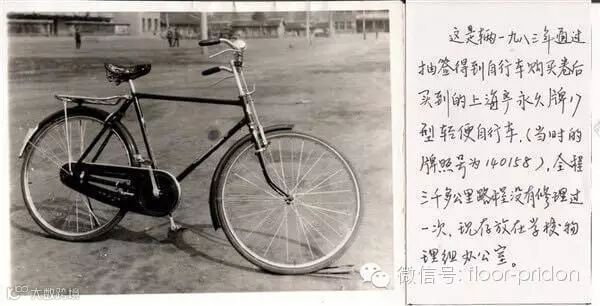 这是辆一九八三年通过
抽签得到自行车购买卷后
买到的上海产永久牌17
型轻便自行车.(当时的
牌照号为140158),全程
三千多公里路程没有修理过
一次.现存放在学校物
理组办公室。
微信号: floor-pridon
大数跨境